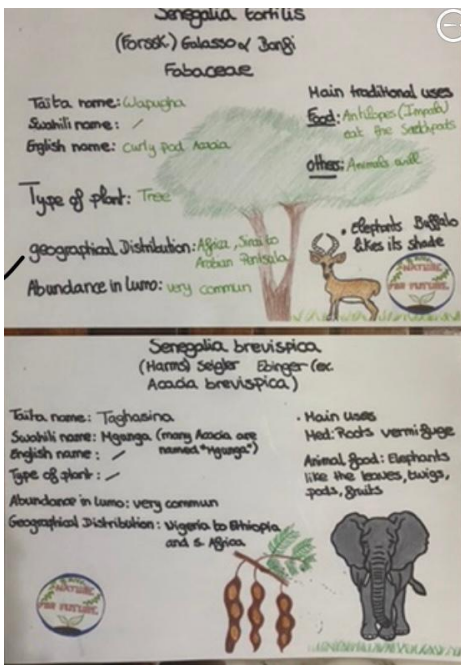 Senegalia tortilis
(Forssk.) Galasso & Banfi
Fabaceae
Taita name: Wapugha
Swahili name: /
English name: Curly Pod Acacia
Type of plant: Tree
geographical Distribution: Africa, Sinai to
Arabian Peninsula
Abundance in Lumo: very commun
Main traditional uses
Food: Antilopes (Impala)
eat the Seedpods
others: Animals
• Elephants Buffalo
likes its shade
NATURE
FOR FUTURE
Senegalia brevispica
(Harms) Seigler Ebinger (ex.
Acacia brevispica)
Taita name: Taghasina
Swahili name: Mgunga (many Acacia are
named "Mgunga")
English name: /
Type of plant: /
Abundance in Lumo: very commun
Geographical Distribution: Nigeria to Ethiopia
and S. Africa
• Main uses
Med: Roots vermifuge
Animal food: Elephants
like the leaves, twigs,
pods, fruits
NATURE
FOR FUTURE